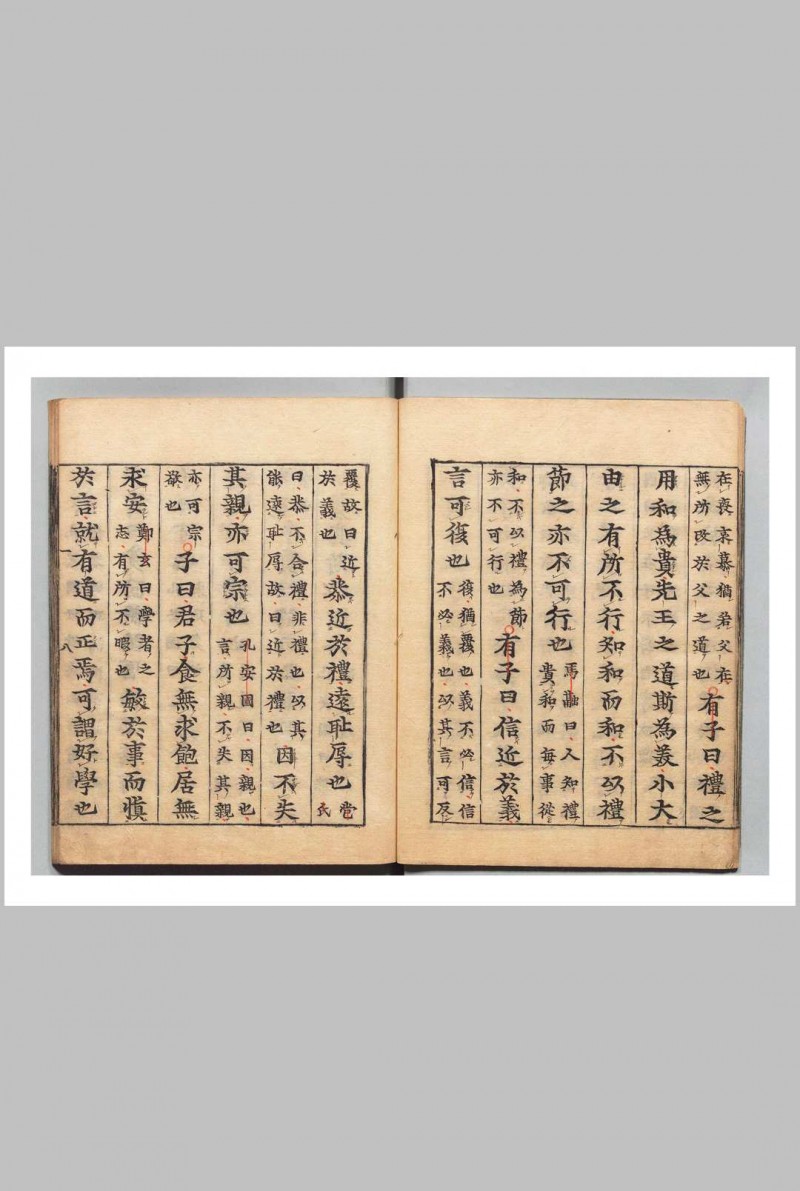 在喪哀慕猶若父在
無所改於父之道也
有子曰禮之
用和為貴先王之道斯為美小大
由之有所不行知和而和不以禮
節之亦不可行也
馬融曰人知禮
貴和而每事從
和不以禮為節
亦不可行也
有子曰信近於義
言可復也
復猶覆也義不必信信
不必義也以其言可反
覆故曰近
於義也
恭近於禮遠耻辱也
苞
氏
曰恭不合禮非禮也以其
能遠耻辱故曰近於禮也
因不失
其親亦可宗也
孔安國曰因親也
言所親不失其親
亦可宗
敬也
子曰君子食無求飽居無
求安
鄭玄曰學者之
志有所不暇也
敏於事而慎
於言就有道而正焉可謂好學也